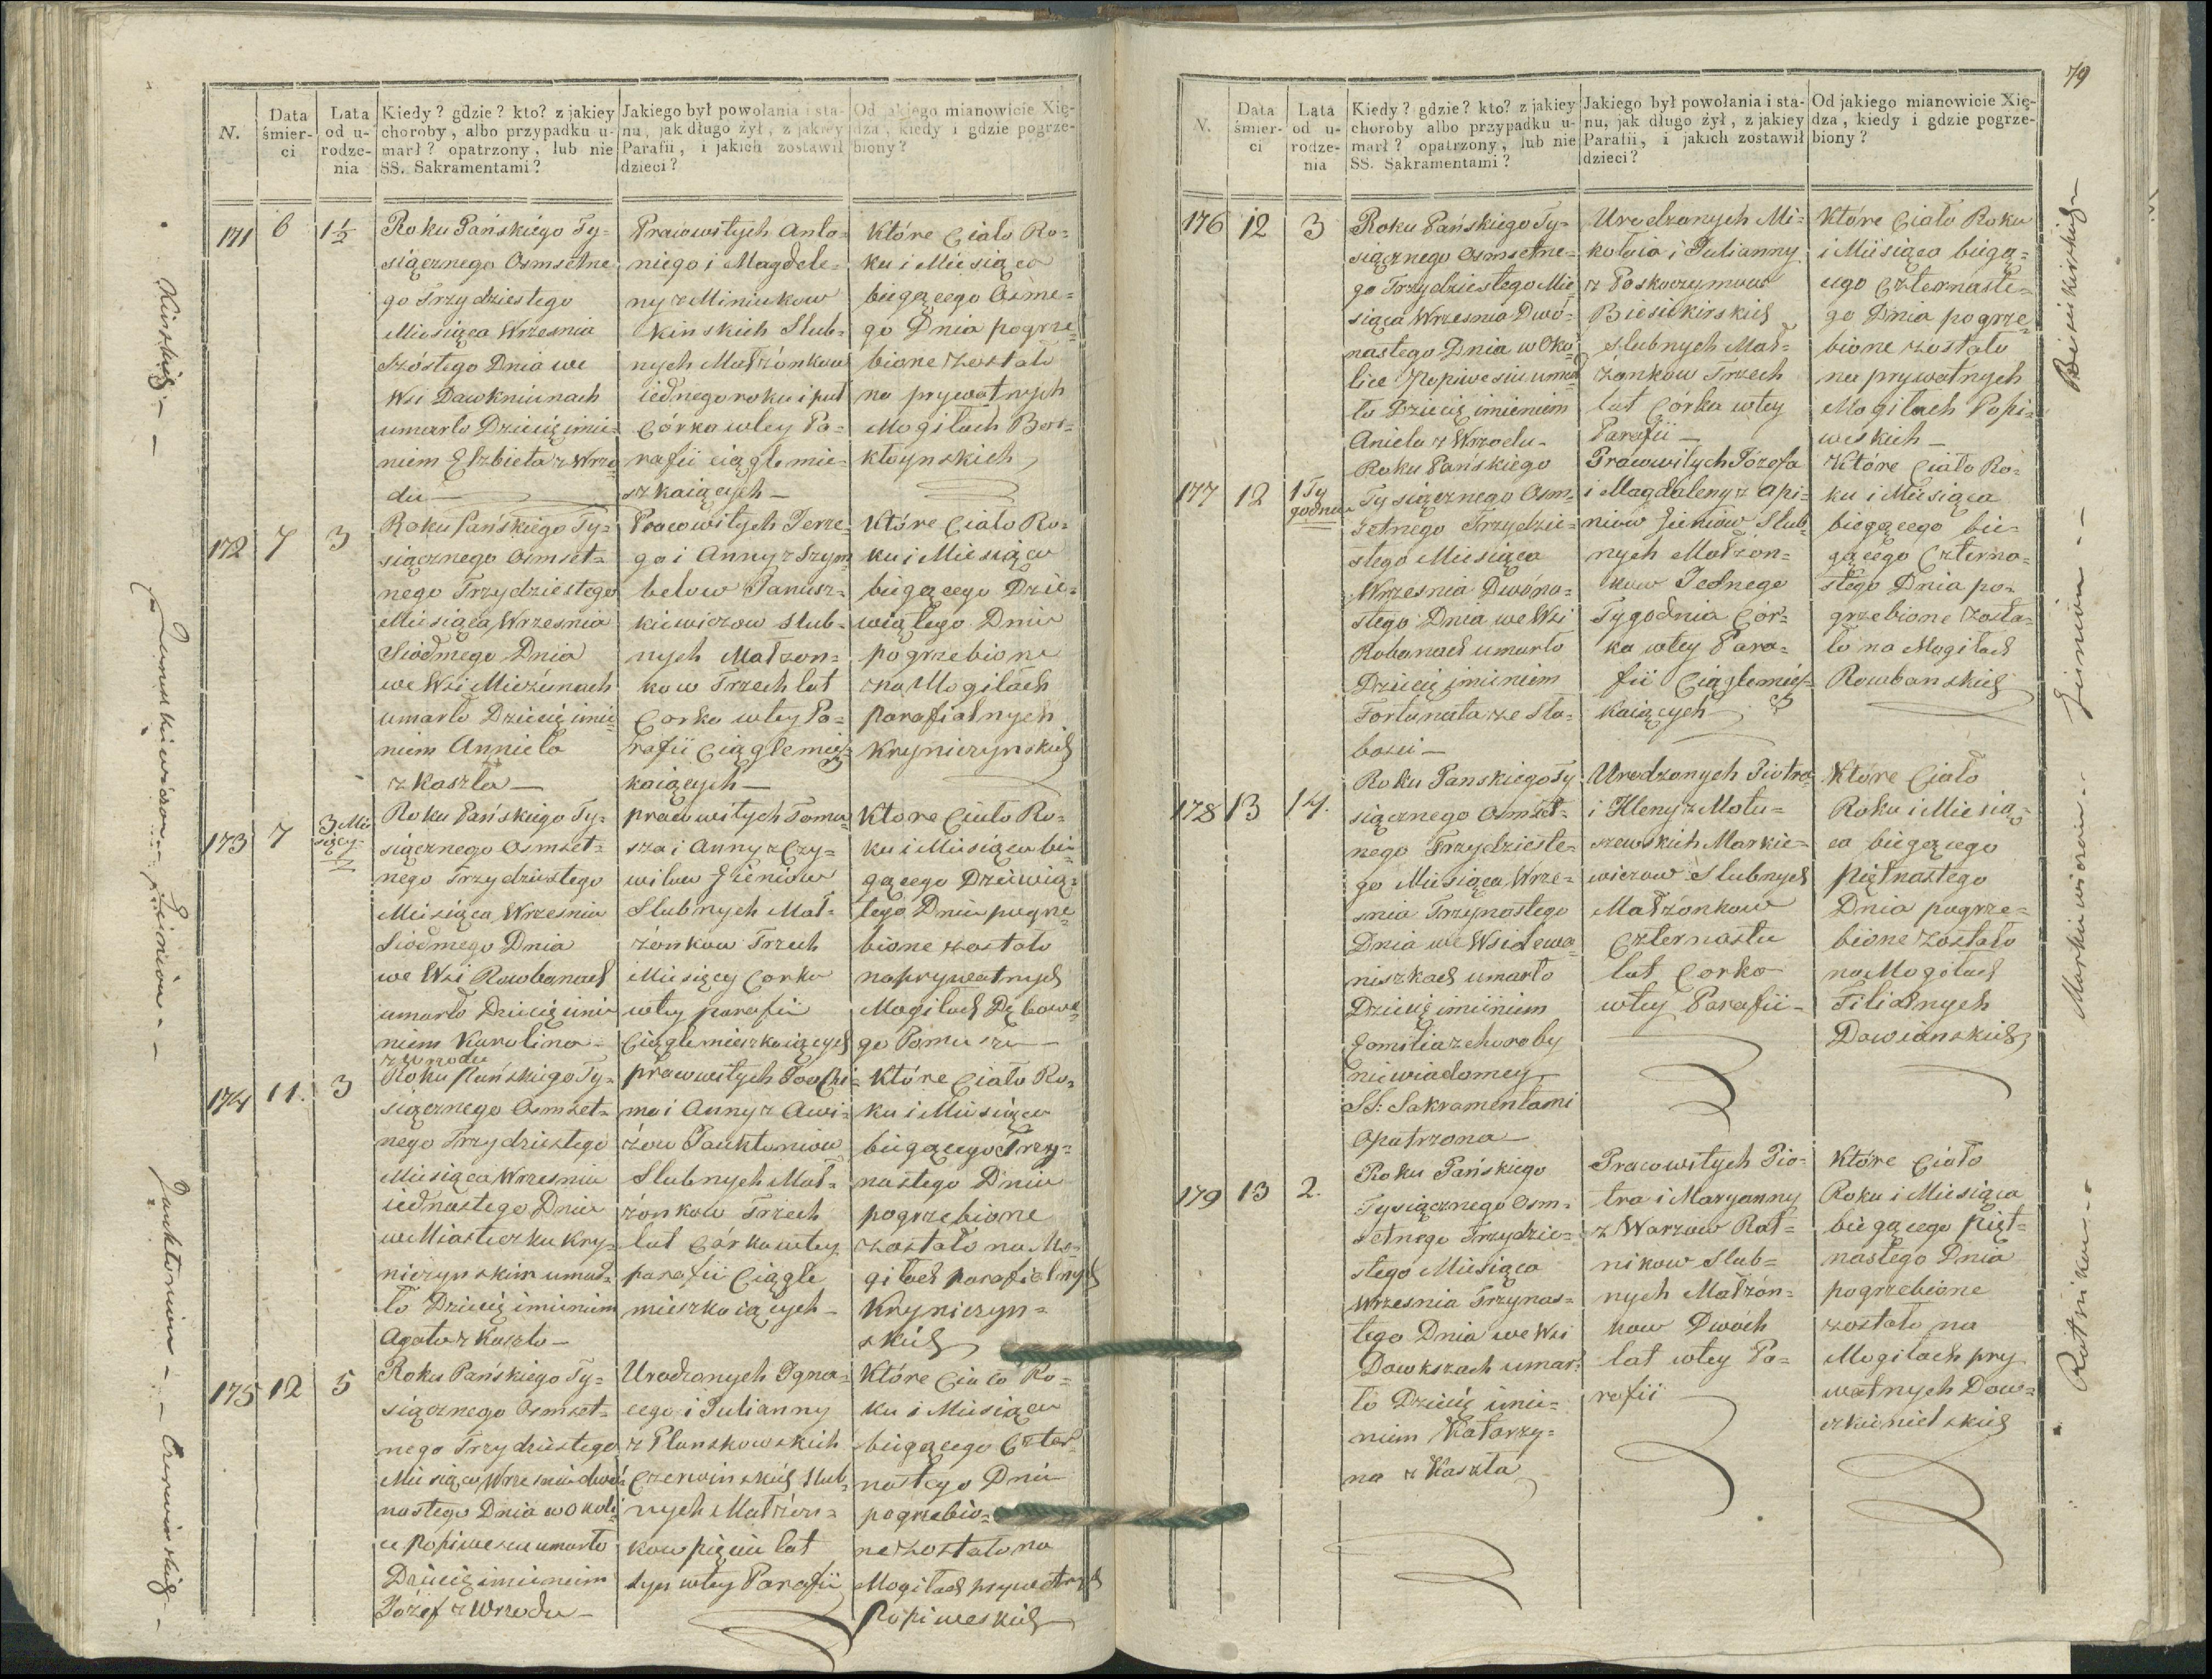 N.
Data śmier-ci
Lata od u-rodze-nia
Kiedy? gdzie? kto? z jakiey
choroby, albo przypadku u-
marł? opatrzony, lub nie
SS. Sakramentami?
Jakiego był powołania i sta-
nu, jak długo żył, z jakiey
Parafii, i jakich zostawił
dzieci?
Od jakiego mianowicie Xię-
dza, kiedy i gdzie pogrze-
biony?
171
6
1½
Roku Pańskiego Ty=
siącznego Osmsetne
go Trzydziestego
Miesiąca Wrzesnia
Szóstego Dnia we
Wsi Dawkniunach
umarło Dziecię imie=
niem Elzbieta z Wrzo
du —
Pracowitych Anto=
niego i Magdele=
ny z Miniukow
Kinskich Slub=
nych Małżonkow
iednego roku i puł
Córka wtey Pa=
rafii ciągle mie=
szkaiących —
Które Ciało Ro=
ku i Miesiąca
biegącego Osme=
go Dnia pogrze=
bione zostało
na prywatnych
Mogiłach
172
7
3
Roku Pańskiego Ty=
siącznego Osmset=
nego Trzydziestego
Miesiąca Wrzesnia
Siodmego Dnia
we Wsi Mieżunach
umarło Dziecię imie=
niem Anniela
z Kaszla —
Pracowitych Jerze=
go i Anny z Szym
below Janusz=
kiewiczow Slub=
nych Małzon=
kow Trzech lat
Corka wtey Pa=
rafii Ciągle miesz
kaiących —
Które Ciało Ro=
ku i Miesiąca
biegącego Dzie=
wiątego Dnia
pogrzebione
na Mogiłach
parafialnych
Krynicznynskich
173
7
3 Mie
sięcy
Roku Pańskiego Ty=
siącznego Osmset=
nego Trzydziestego
Miesiąca Wrzesnia
Siodmego Dnia
we Wsi Rowbanach
umarło Dziecię imie
niem Karolina —
z Wrzodu
pracowitych Toma=
sza i Anny z Czy=
wilow Jieniow
Slubnych Mał=
żonkow Trzech
Miesięcy Corka
wtey parafii
Ciągle mieszkaiących
Ktore Ciało Ro=
ku i Miesiąca bie
gącego Dziewią=
tego Dnia pogrze
bione zostało
na prywatnych
Mogiłach Dębowe
go Pomusza —
174
11.
3
Roku Pańskiego Ty=
siącznego Osmset=
nego Trzydziestego
Miesiąca Wrzesnia
iednastego Dnia
w Miasteczku Kry=
niczynskim umar=
ło Dziecię imieniem
Agata z Kaszlo —
pracowitych Joachi=
ma i Anny z Awi=
żow Jauktoniow
Slubnych Mał=
żonkow Trzech
lat Córka wtey
parafii Ciągle
mieszkaiących —
Które Ciało Ro=
ku i Miesiąca
biegącego Trzy=
nastego Dnia
pogrzebione
zostało na Mo=
giłach parafialnych
Kryniczyn=
skich
175
12
5
Roku Pańskiego Ty=
siącznego Osmset=
nego Trzydziestego
Miesiąca Wrzesnia dwó=
nastego Dnia w Okoli
cy Popiwesiu umarło
Dziecię imieniem
Józef z Wrzodu —
Urodzonych Igna=
cego i Julianny
z Plauskowskich
Czerwinskich Slub=
nych Małżon=
kow pięciu lat
syn wtey Parafii
Które Ciało Ro=
ku i Miesiąca
biegącego Czter=
nastego Dnia
pogrzebio=
ne zostało na
Mogiłach prywatnych
Popiweskich
Kinskich —
Januszkiewiczow —
Jieniow —
Jauktoniow —
Czerwinskich —
79
N.
Data śmier-ci
Lata od u-rodze-nia
Kiedy? gdzie? kto? z jakiey
choroby albo przypadku u-
marł? opatrzony, lub nie
SS. Sakramentami?
Jakiego był powołania i sta-
nu, jak długo żył, z jakiey
Parafii, i jakich zostawił
dzieci?
Od jakiego mianowicie Xię-
dza, kiedy i gdzie pogrze-
biony?
176
12
3
Roku Pańskiego Ty=
siącznego Osmsetne=
go Trzydziestego Mie=
siąca Wrzesnia Dwó=
nastego Dnia w Oko=
licy Popiwesiu umar
ło Dziecię imieniem
Aniela z Wrzodu —
Urodzonych Mi=
kołaia i Julianny
z Paskoczymow
Biesiekirskich
Slubnych Mał=
żonkow Trzech
lat Córka wtey
Parafii —
Które Ciało Roku
i Miesiąca biegą=
cego Czternaste=
go Dnia pogrze=
bione zostało
na prywatnych
Mogiłach Popi=
weskich —
177
12
1 Ty
godnia
Roku Pańskiego
Tysiącznego Osm=
setnego Trzydzie=
stego Miesiąca
Wrzesnia Dwóna=
stego Dnia we Wsi
Robanach umarło
Dziecię imieniem
Fortunata ze Sła=
bosci —
Pracowitych Józefa
i Magdaleny z Api=
niow Jieniow Slub
nych Małżon=
kow Jednego
Tygodnia Cór=
ka wtey Para=
fii Ciągle miesz=
kaiących
Które Ciało Ro=
ku i Miesiąca
biegącego bie=
gącego Czterna=
stego Dnia po=
grzebione zosta=
ło na Mogiłach
Rowbanskich
178
13
14.
Roku Panskiego Ty
siącznego Osmset=
nego Trzydzieste=
go Miesiąca Wrze=
snia Trzynastego
Dnia we Wsi Lewa
niszkach umarło
Dziecię imieniem
Emilia z choroby
niewiadomey
SS: Sakramentami
Opatrzona —
Urodzonych Piotra
i Heleny z Matu=
szewskich Markie=
wiczow Slubnych
Małżonkow
Czternastu
lat Corka
wtey Parafii —
Które Ciało
Roku i Miesią=
ca biegącego
piętnastego
Dnia pogrze=
bione zostało
na Mogiłach
Filialnych
Dawianskich
179
13
2.
Roku Pańskiego
Tysiącznego Osm=
setnego Trzydzie=
stego Miesiąca
Wrzesnia Trzynas=
tego Dnia we Wsi
Dowkszach umar=
ło Dziecię imie=
niem Katarzy=
na z Kaszla
Pracowitych Pio=
tra i Maryanny
z Warzow Rat=
nikow Slub=
nych Małżon=
kow Dwóch
lat wtey Pa=
rafii
Które Ciało
Roku i Miesiąca
biegącego pięt=
nastego Dnia
pogrzebione
zostało na
Mogiłach pry
watnych
Biesiekirskich —
Jieniow —
Markiewiczow —
Ratnikow —